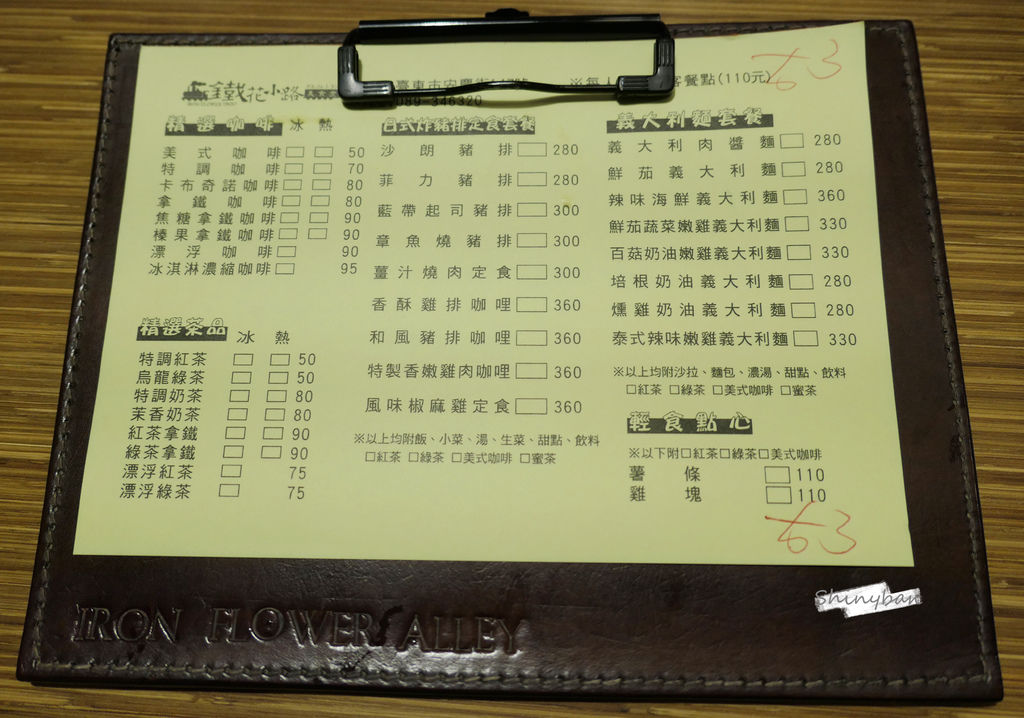 鐵花小路
臺東市安慶街
※每人
客餐點(110元)
089-346320
63
精選咖啡 冰 熱
美式咖啡□ □ 50
特調咖啡□ □ 70
卡布奇諾咖啡□ □ 80
拿鐵咖啡□ □ 80
焦糖拿鐵咖啡□ □ 90
榛果拿鐵咖啡□ □ 90
漂浮咖啡□ 90
冰淇淋濃縮咖啡□ 95
精選茶品 冰 熱
特調紅茶 □ □ 50
烏龍綠茶 □ □ 50
特調奶茶 □ □ 80
茉香奶茶 □ □ 80
紅茶拿鐵 □ □ 90
綠茶拿鐵 □ □ 90
漂浮紅茶 □ 75
漂浮綠茶 □ 75
日式炸豬排定食套餐
沙朗豬排□ 280
菲力豬排□ 280
藍帶起司豬排□ 300
章魚燒豬排□ 300
薑汁燒肉定食□ 300
香酥雞排咖哩□ 360
和風豬排咖哩□ 360
特製香嫩雞肉咖哩□ 360
風味椒麻雞定食□ 360
※以上均附飯、小菜、湯、生菜、甜點、飲料
□紅茶 □綠茶 □美式咖啡 □蜜茶
義大利麵套餐
義大利肉醬麵□ 280
鮮茄義大利麵□ 280
辣味海鮮義大利麵□ 360
鮮茄蔬菜嫩雞義大利麵□ 330
百菇奶油嫩雞義大利麵□ 330
培根奶油義大利麵□ 280
燻雞奶油義大利麵□ 280
泰式辣味嫩雞義大利麵□ 330
※以上均附沙拉、麵包、濃湯、甜點、飲料
□紅茶 □綠茶 □美式咖啡 □蜜茶
輕食點心
※以下附□紅茶□綠茶□美式咖啡
薯條 □110
雞塊 □110
63
IRON FLOWER ALLEY
Shinyban